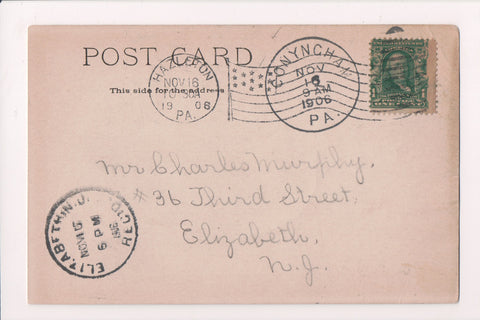 POST CARD
This side for the address
HAZLETON
NOV 16
10 30A
19 06
PA.
CONYNGHAM
NOV
16
9 AM
1906
PA.
Mr Charles Murphy,
# 36 Third Street,
Elizabeth,
N.J.
ELIZABETH, N.J. REC'D.
NOV 16
9 PM
1906